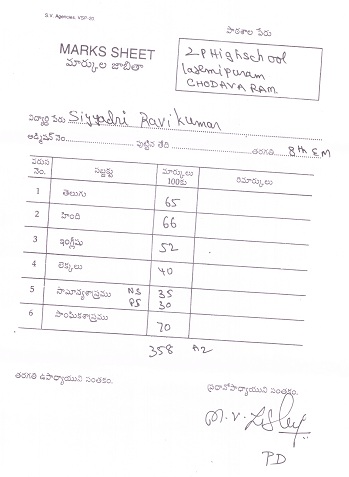 S.V. Agencies. VSP-20.
పాఠశాల పేరు
MARKS SHEET
మార్కుల జాబితా
ZP Highschool
Laxmipuram
CHODAVARAM
విద్యార్థి పేరు Siyyadri Ravi Kumar
అడ్మిషన్ నెం. పుట్టిన తేది తరగతి 8th EM
వరుస నెం. సబ్జక్టు మార్కులు 100కు రిమార్కులు
1 తెలుగు 65
2 హింది 66
3 ఇంగ్లీషు 52
4 లెక్కలు 40
5 సామాన్యశాస్త్రము NS 35
PS 30
6 సాంఘికశాస్త్రము 70
358 A2
తరగతి ఉపాధ్యాయుని సంతకం.
ప్రధానోపాధ్యాయుని సంతకం.
PD